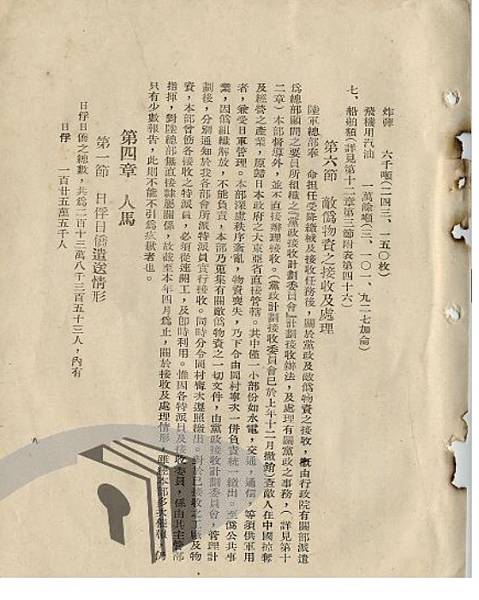 炸彈　六千噸（二四三、一五〇枚）
飛機用汽油　一萬餘噸（三、一〇一、九二七加侖）
七、船舶類（詳見第十二章第三節附表第四十六）
第六節　敵僞物資之接收及處理
陸軍總部奉　命担任受降繳械及接收任務後，關於黨政及敵僞物資之接收，概由行政院有關部派遣
爲總部顧問之要員所組織之「黨政接收計劃委員會」計劃接收辦法，及處理有關黨政之事務，（詳見第十
二章）本部督導外，並不直接辦理接收。（黨政計劃接收委員會已於上年十二月撤銷）查敵人在中國掠奪
及經營之產業，原歸日本政府之大東亞省直接管轄。其中僅一小部份如水電，交通，通信，等須供軍用
者，兼受日軍管理。本部深慮秩序紊亂，物資喪失，乃下令由岡村寧次一併負責統一繳出。至僞公共事
業，因僞組織解放，不能負責，本部乃蒐集有關敵僞物資之一切文件，由黨政接收計劃委員會，管理計
劃後，分別通知於我各部會所派特派員實行接收。同時分令岡村寧次遵照繳出。對於已接收之工廠及物
資，本部曾飭各接收之特派員，必須從速開工，及即時利用。惟因各特派員及接收委員，係由其主管部
指揮，對陸總部無直接隸屬關係，故截至本年四月爲止，關於接收及處理情形，雖經本部多次催報，仍
只有少數報告，此則不能不引爲疚歉者也。
第四章　人馬
第一節　日俘日僑遣送情形
日俘日僑之總數，共爲二百十三萬八千三百五十三人，內有
日俘　一百廿五萬五千人